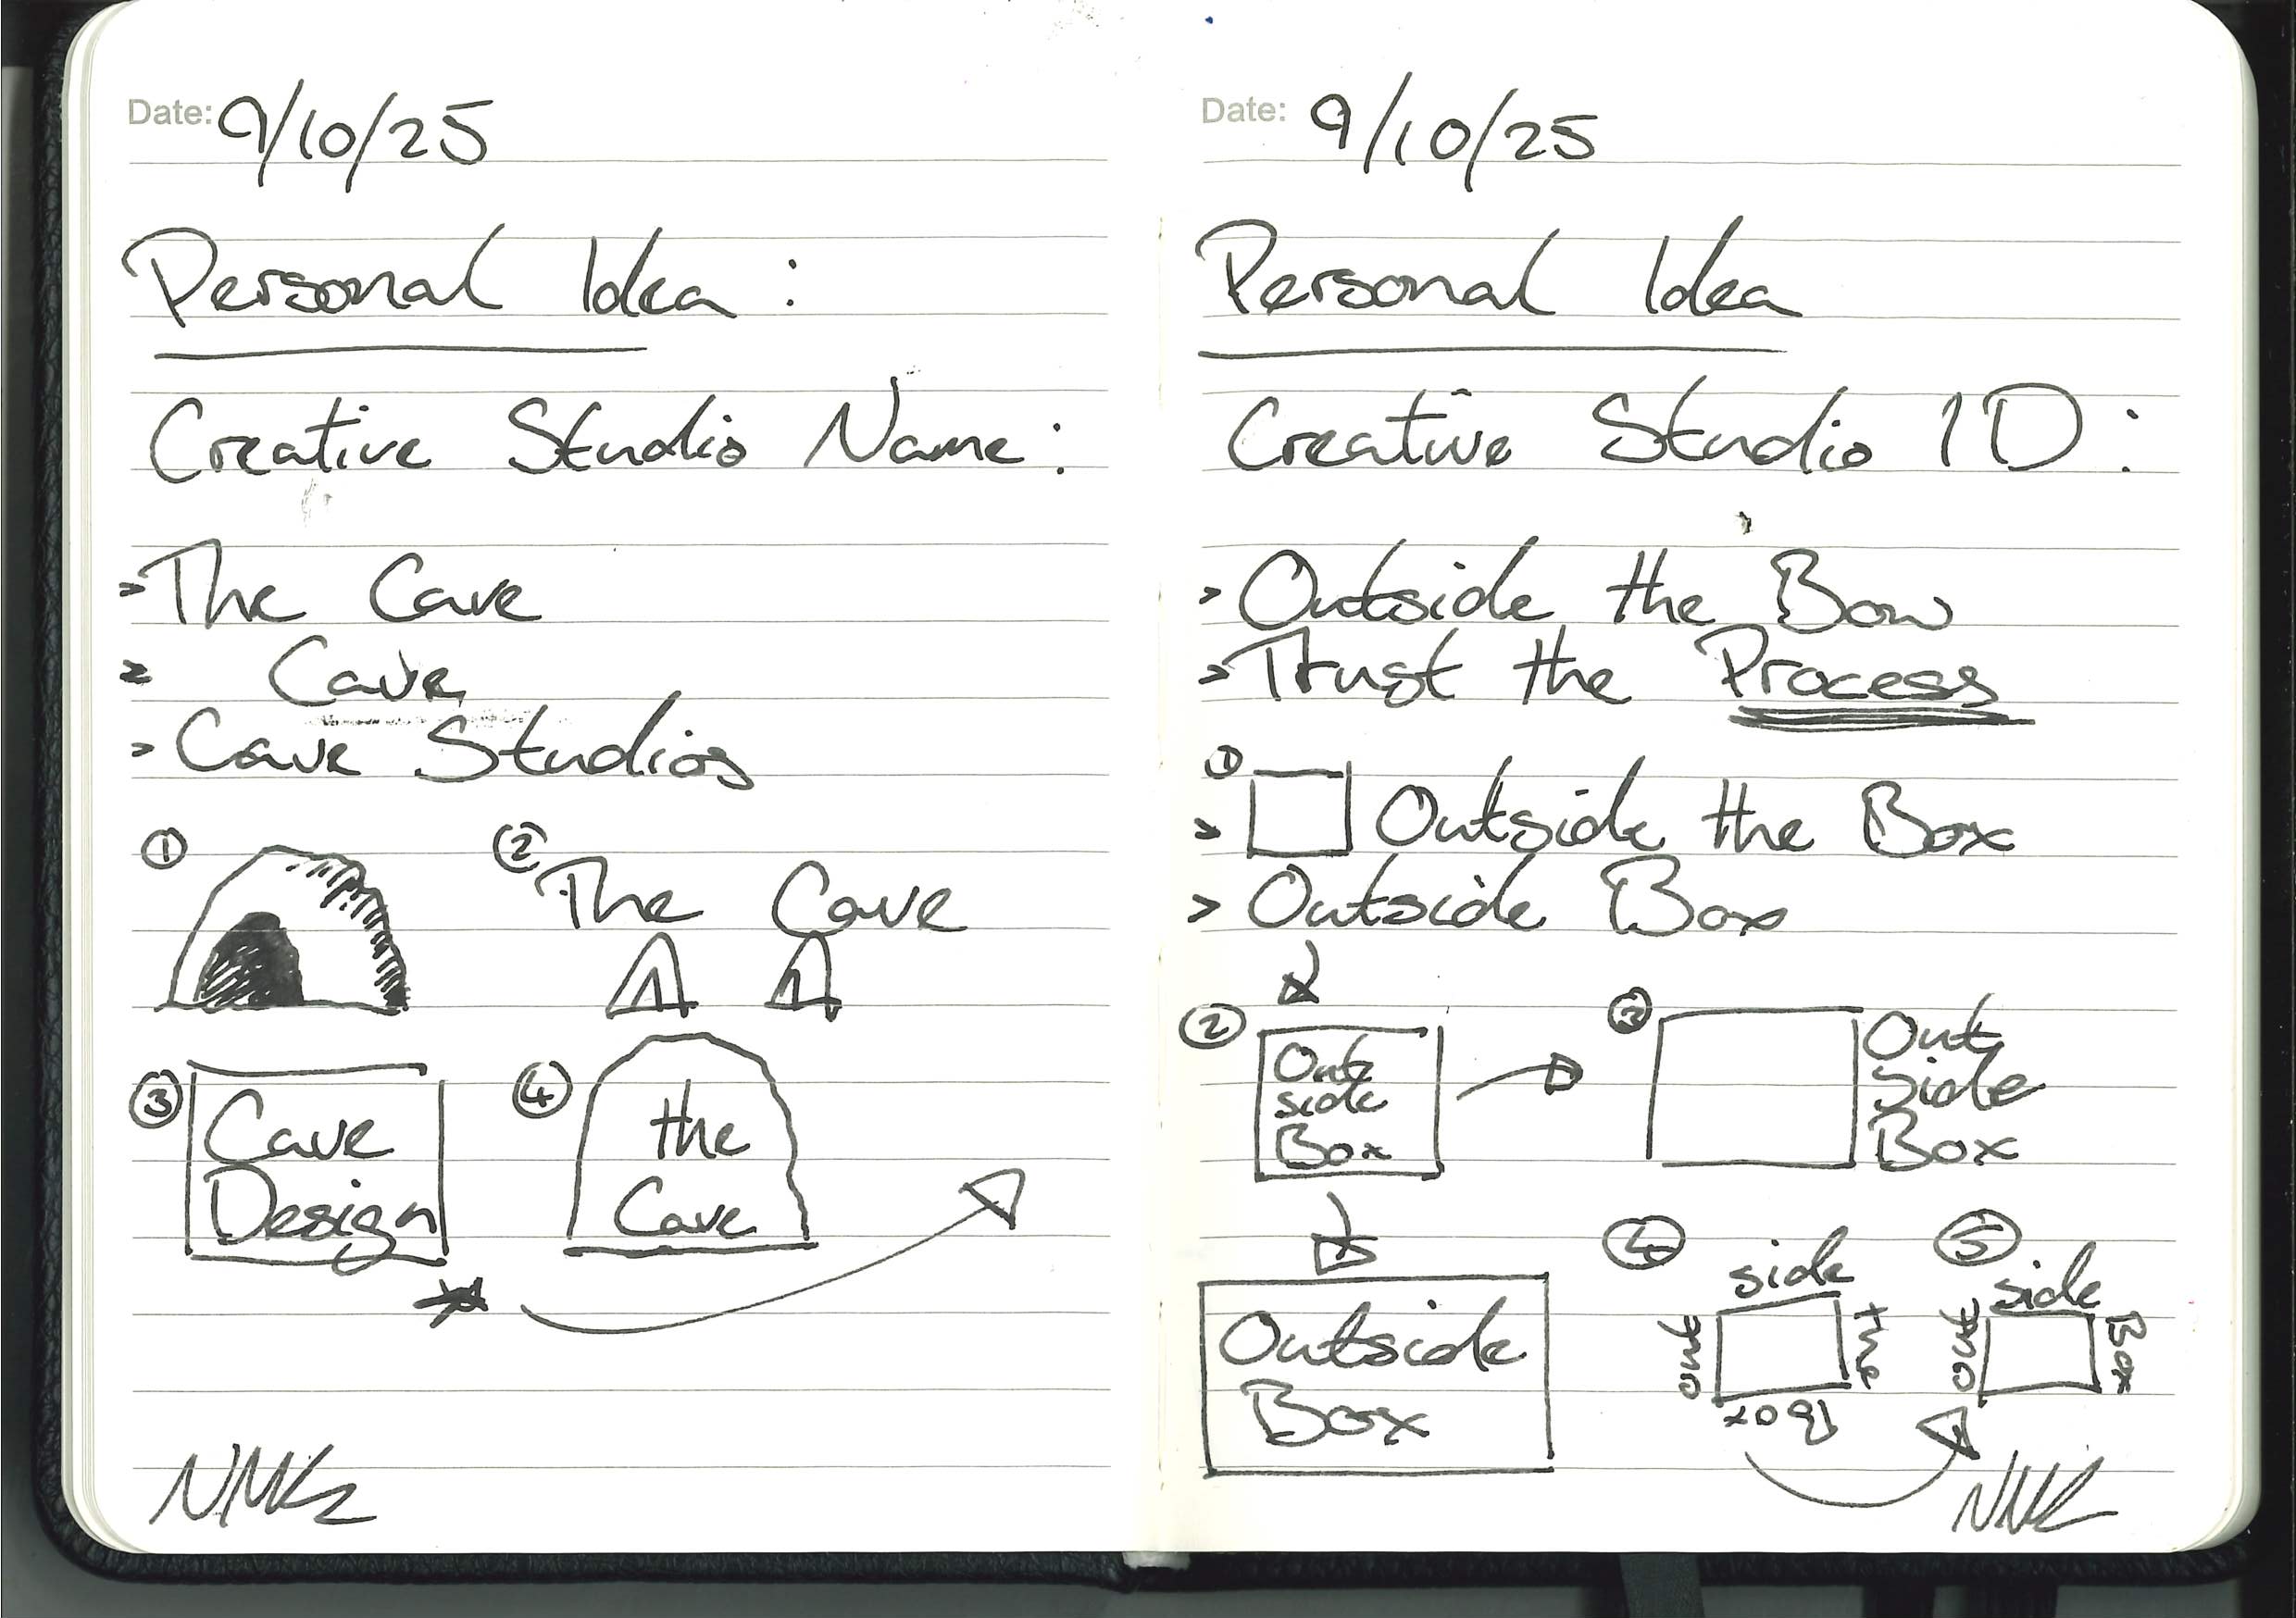 Date: 9/10/25
Personal Idea:
Creative Studio Name:
> The Cave
> Cave
> Cave Studios
①
② The Cave
③ Cave
Design
④ the
Cave
Date: 9/10/25
Personal Idea
Creative Studio ID:
> Outside the Bow
> Trust the Process
①
> Outside the Box
> Outside Box
② Out
side
Box
③ Out
side
Box
Outside
Box
④ side
out
the
Box
⑤ side
out
Box